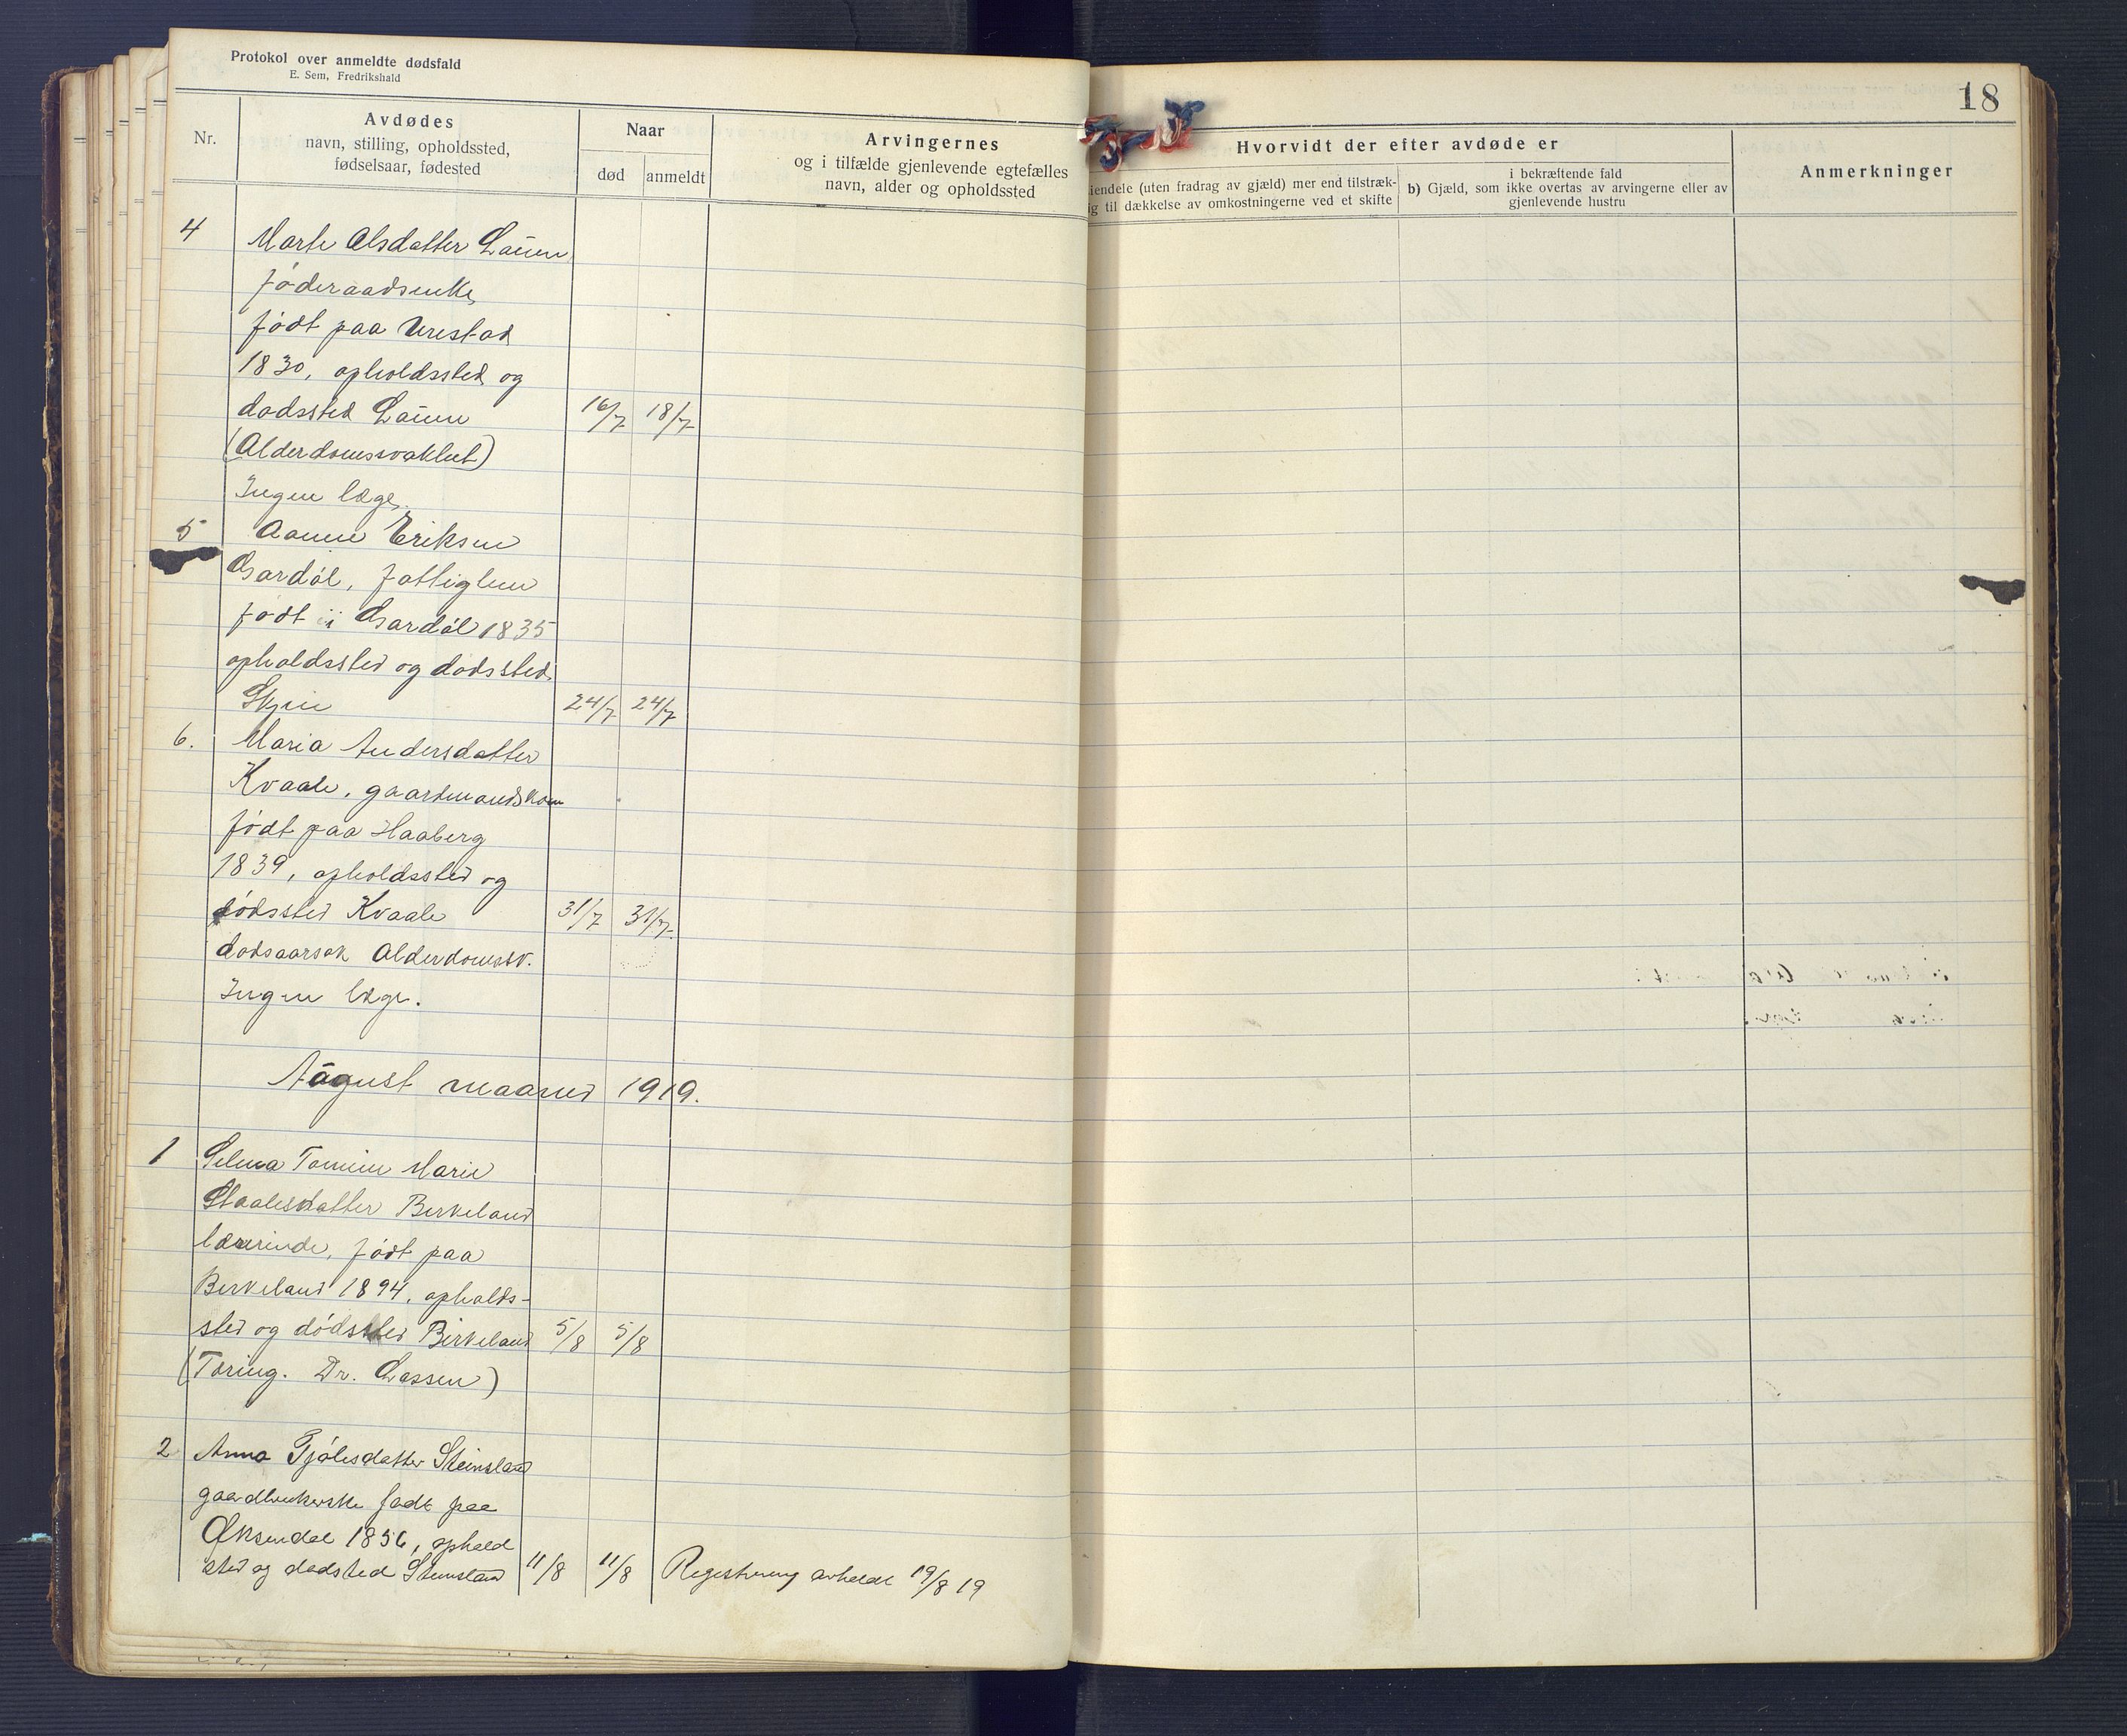 Protokol over anmeldte dødsfald
E. Sem, Fredrikshald
18
Nr.
Avdødes
navn, stilling, opholdssted,
fødselsaar, fødested
Naar
død
anmeldt
Arvingernes
og i tilfælde gjenlevende egtefælles
navn, alder og opholdssted
Hvorvidt der efter avdøde er
iendele (uten fradrag av gjæld) mer end tilstræk-
ig til dækkelse av omkostningerne ved et skifte
i bekræftende fald
b) Gjæld, som ikke overtas av arvingerne eller av
gjenlevende hustru
Anmerkninger
4 Marte Olsdatter Lauen
føderaadsenke,
født paa Urestad
1830, opholdssted og
dødssted Lauen 16/7 18/7
(Alderdomssvakhet)
Ingen læge.
5 Aanen Eriksen
Gardøl, fattiglem
født i Gardøl 1835
opholdssted og dødssted
24/7 24/7
6. Maria Andersdatter
Kvaale, gaardmandskone
født paa Haaberg
1839, opholdssted og
dødssted Kvaale 31/7 31/7.
dødsaarsak Alderdomssv.
Ingen læge.
August maaned 1919.
1 Selma Tomine Marie
Staalesdatter Birkeland
lærerinde, født paa
Birkeland 1894, opholds-
sted og dødssted Birkeland 5/8 5/8
(Tæring. Dr. Lassen)
2 Anna Tjølesdatter Steinsland
gaardbrukerske født paa
Øksendal 1856, ophold
sted og dødsted Steinsland 11/8 11/8 Registrering avholdt 19/8 19